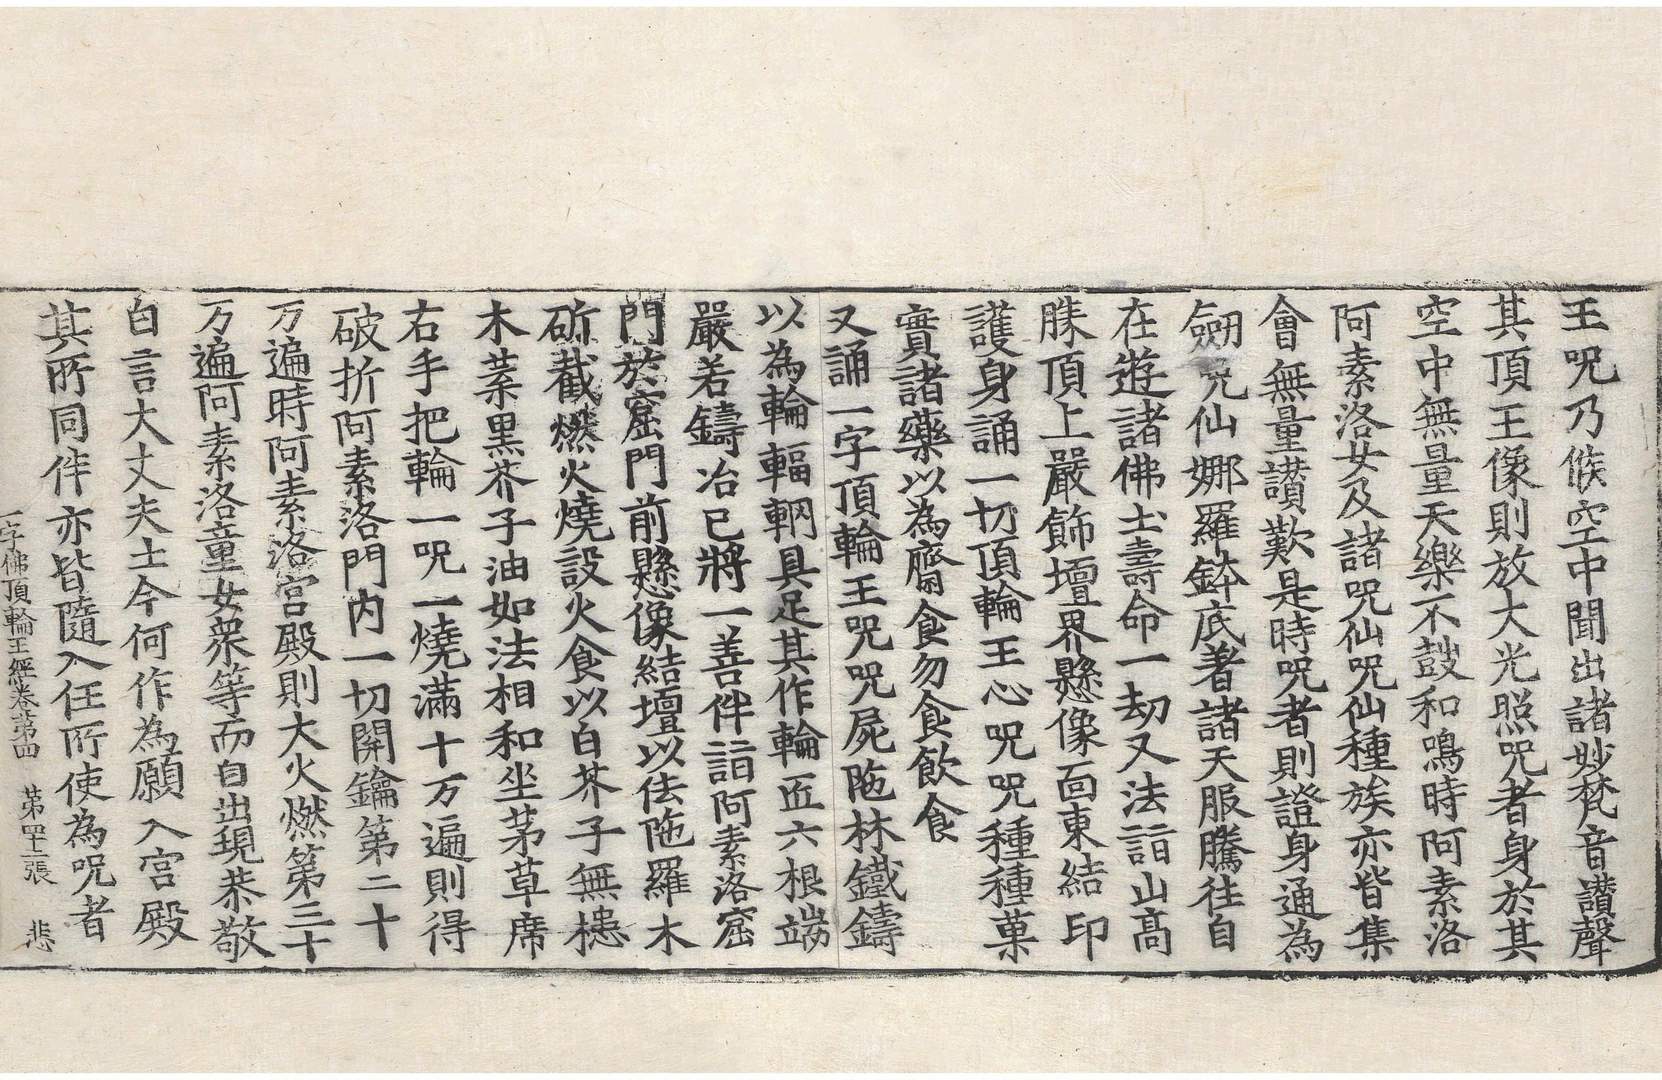 王呪乃候空中聞出諸妙梵音讃聲
其頂王像則放大光照呪者身於其
空中無量天樂不鼓和鳴時阿素洛
阿素洛女及諸呪仙呪仙種族亦皆集
會無量讃歎是時呪者則證身通為
劒呪仙娜羅鉢底著諸天服騰往自
在遊諸佛土壽命一劫又法詣山高
勝頂上嚴飾壇界懸像面東結印
護身誦一切頂輪王心呪呪種種菓
實諸藥以為齋食勿食飲食
又誦一字頂輪王呪呪屍陁林鐵鑄
以為輪輻輞具足其作輪匝六根端
嚴若鑄冶已將一善伴詣阿素洛窟
門於窟門前懸像結壇以佉陁羅木
斫截燃火燒設火食以白芥子無㯃
木葉黒芥子油如法相和坐茅草席
右手把輪一呪一燒滿十万遍則得
破折阿素洛門内一切關鑰第二十
万遍時阿素洛宫殿則大火燃第三十
万遍阿素洛童女衆等而自出現恭敬
白言大丈夫士今何作為願入宫殿
其所同伴亦皆隨入任所使為呪者
一字佛頂輪王經卷第四 第四十二張 悲